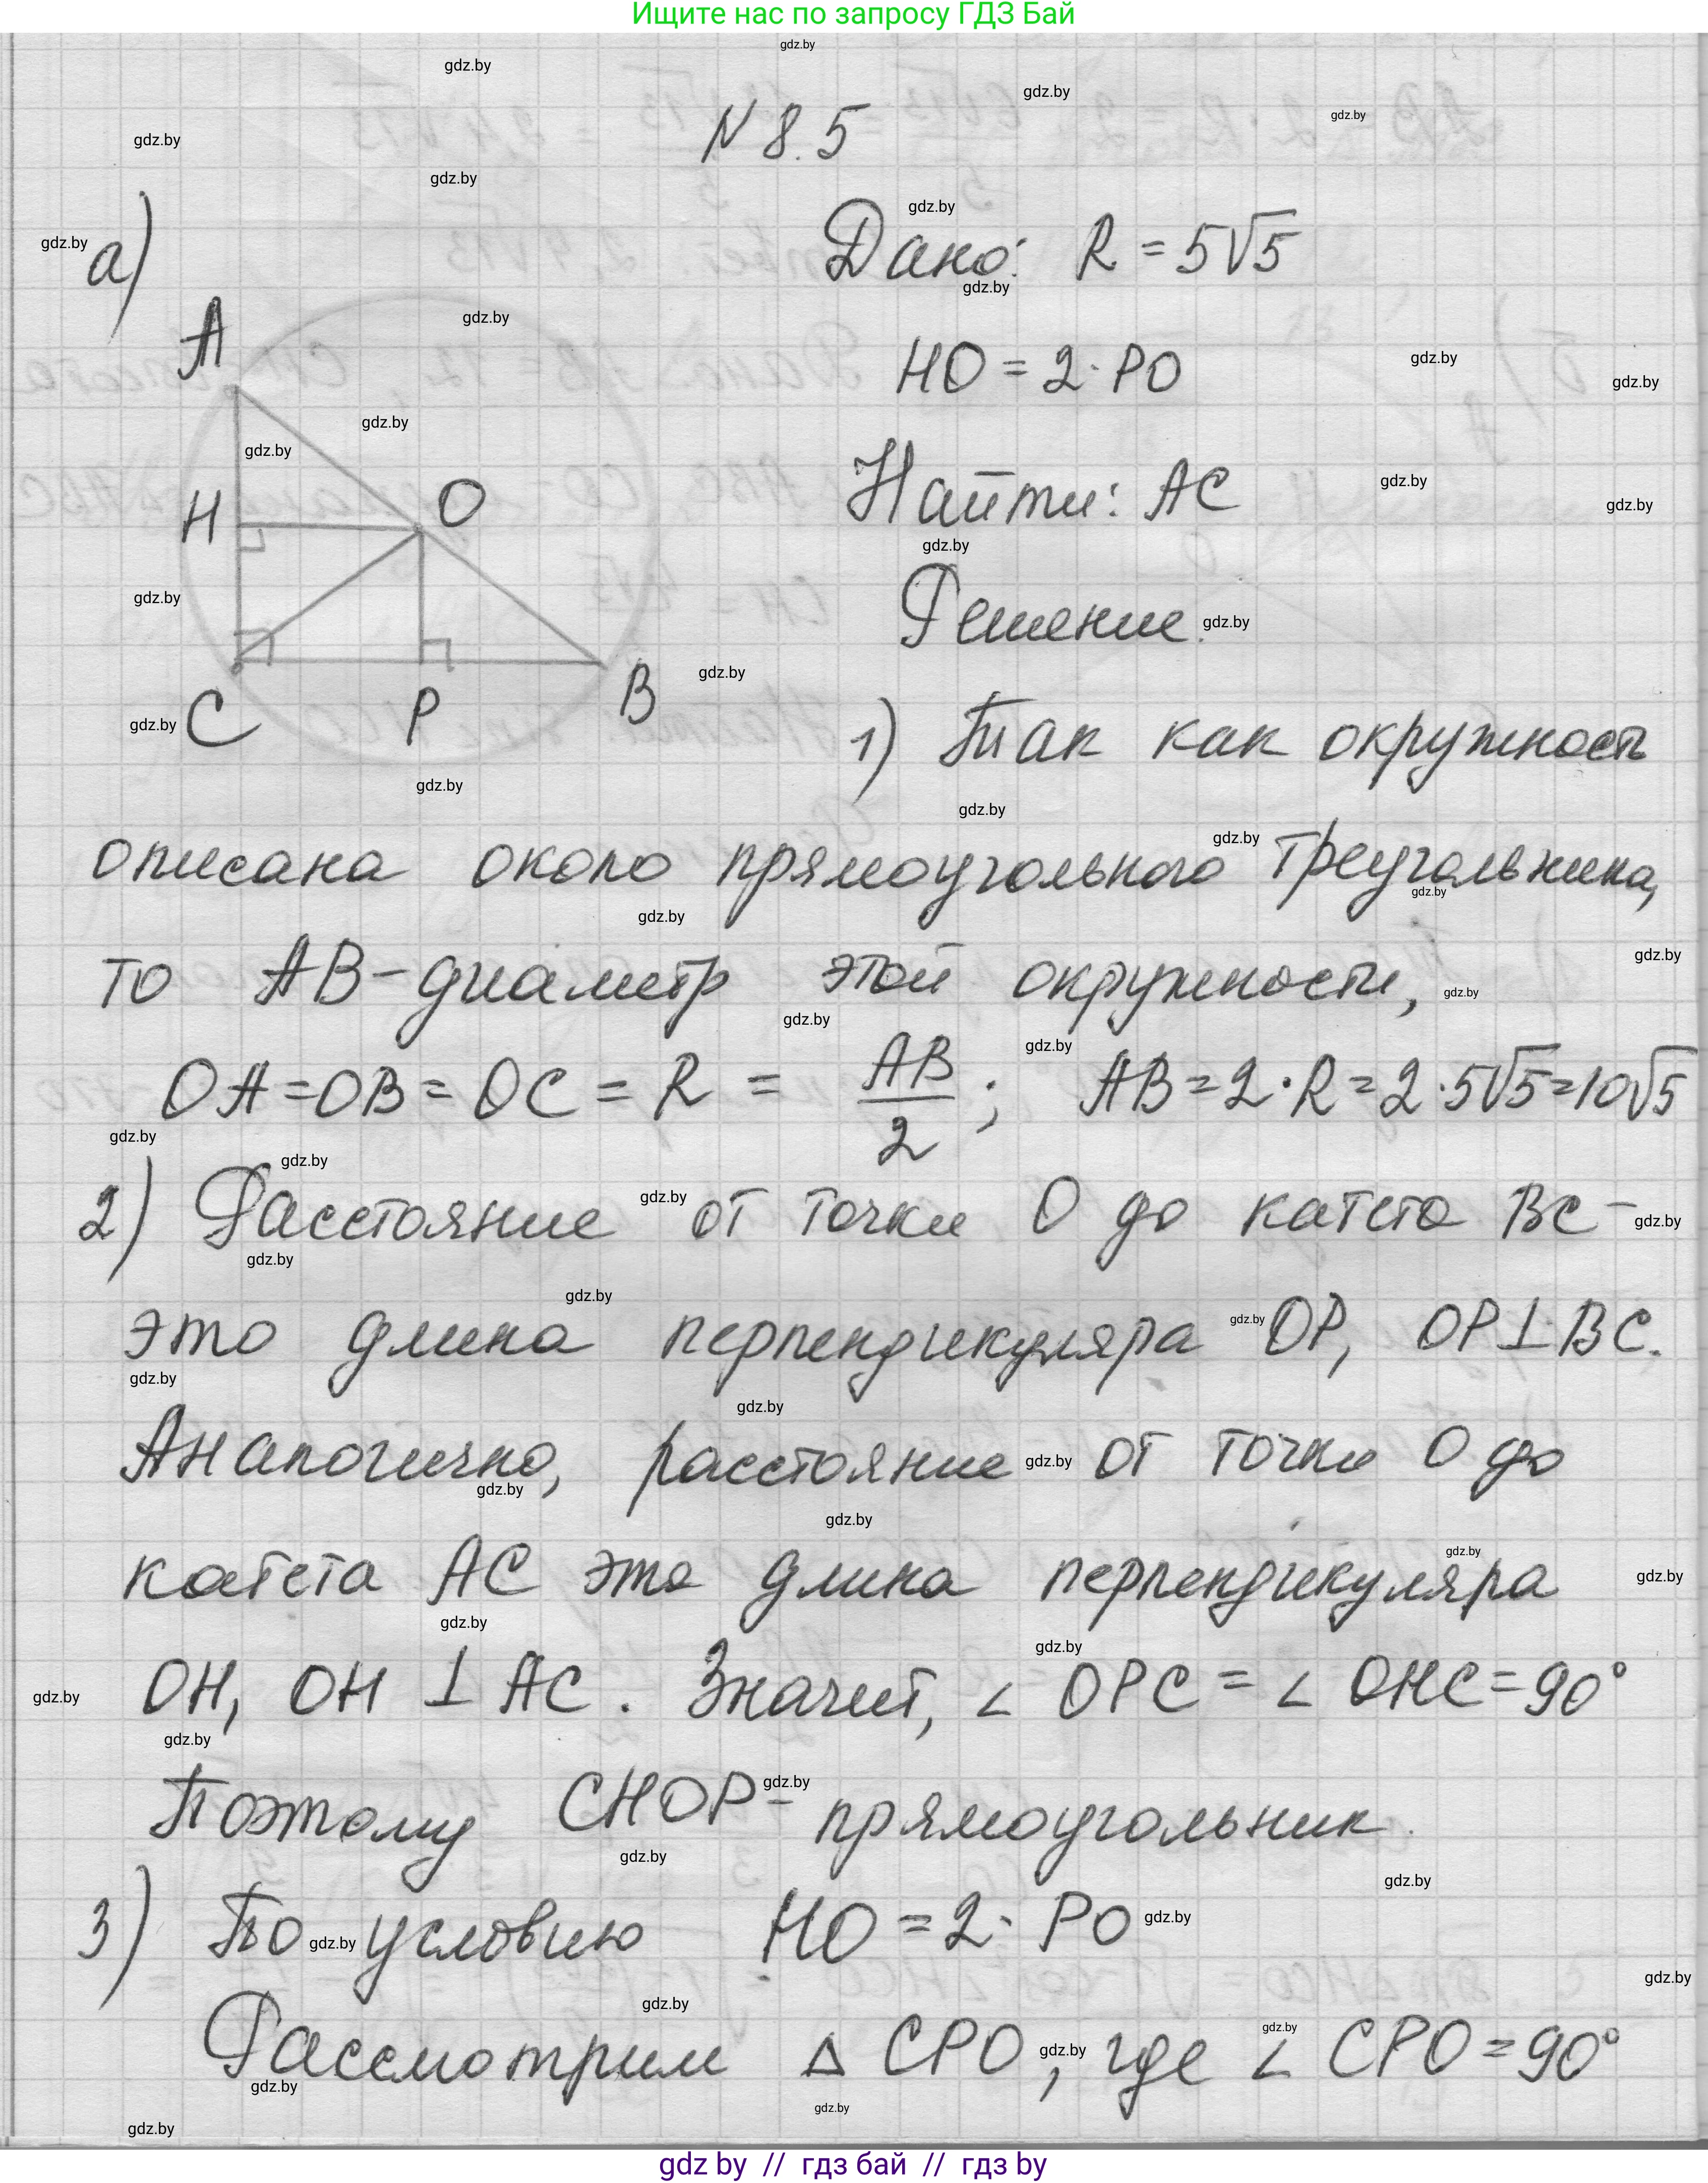 Ищите нас по запросу ГДЗ Бай
N 8.5
а)
Дано: R = 5√5
HO = 2 · PO
Найти: AC
Решение.
A
H
O
C
P
B
1) Так как окружность
описана около прямоугольного треугольника,
то AB - диаметр этой окружности,
OA = OB = OC = R = AB/2 ; AB = 2 · R = 2 · 5√5 = 10√5
2) Расстояние от точки O до катета BC -
это длина перпендикуляра OP, OP ⊥ BC.
Аналогично, расстояние от точки O до
катета AC это длина перпендикуляра
OH, OH ⊥ AC. Значит, ∠ OPC = ∠ OHC = 90°
Поэтому CHOP - прямоугольник.
3) По условию HO = 2 · PO
Рассмотрим Δ CPO, где ∠ CPO = 90°
gdz by // гдз бай // гдз by